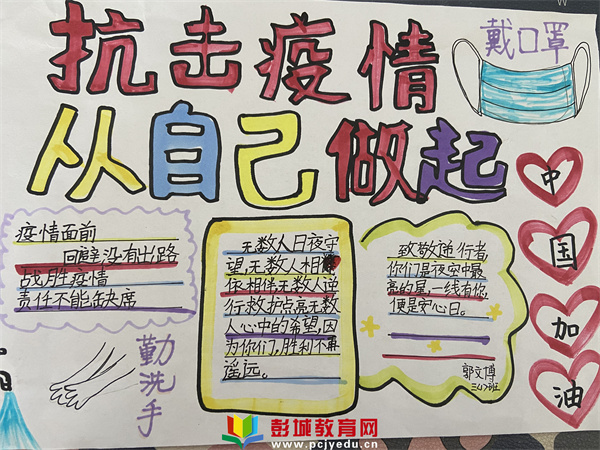 抗击疫情
戴口罩
从自己做起
中
国
加
油
疫情面前
回避没有出路
战胜疫情
责任不能缺席
勤洗手
无数人日夜守
望,无数人相
伴,无数人逆
行救护点亮无数
人心中的希望,因
为你们,胜利不再
遥远。
致敬逆行者,
你们是夜空中最
亮的星,一线有你,
便是安心日。
郭文博
彭城教育网
www.pcjyedu.cn